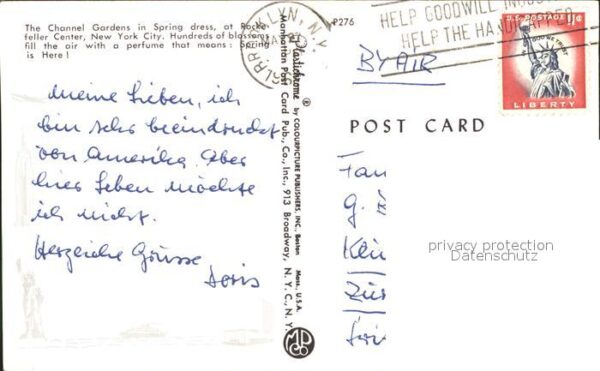 The Channel Gardens in Spring dress, at Rocke-
feller Center, New York City. Hundreds of blossoms
fill the air with a perfume that means: Spring
is Here!
Meine Lieben, ich
bin sehr beeindruckt
von Amerika. Aber
hier Leben möchte
ich nicht.
Herzliche Grüsse
Doris
P276
Plastichrome ® by COLOURPICTURE PUBLISHERS, INC. Boston Mass., U.S.A.
Manhattan Post Card Pub., Co., Inc., 913 Broadway, N.Y.C., N.Y.
BROOKLYN, N.Y.
HELP GOODWILL
HELP THE HANDICAPPED
U.S. POSTAGE 11¢
IN GOD WE TRUST
LIBERTY
BY AIR
POST CARD
Fam
g.
Zür
privacy protection
Datenschutz